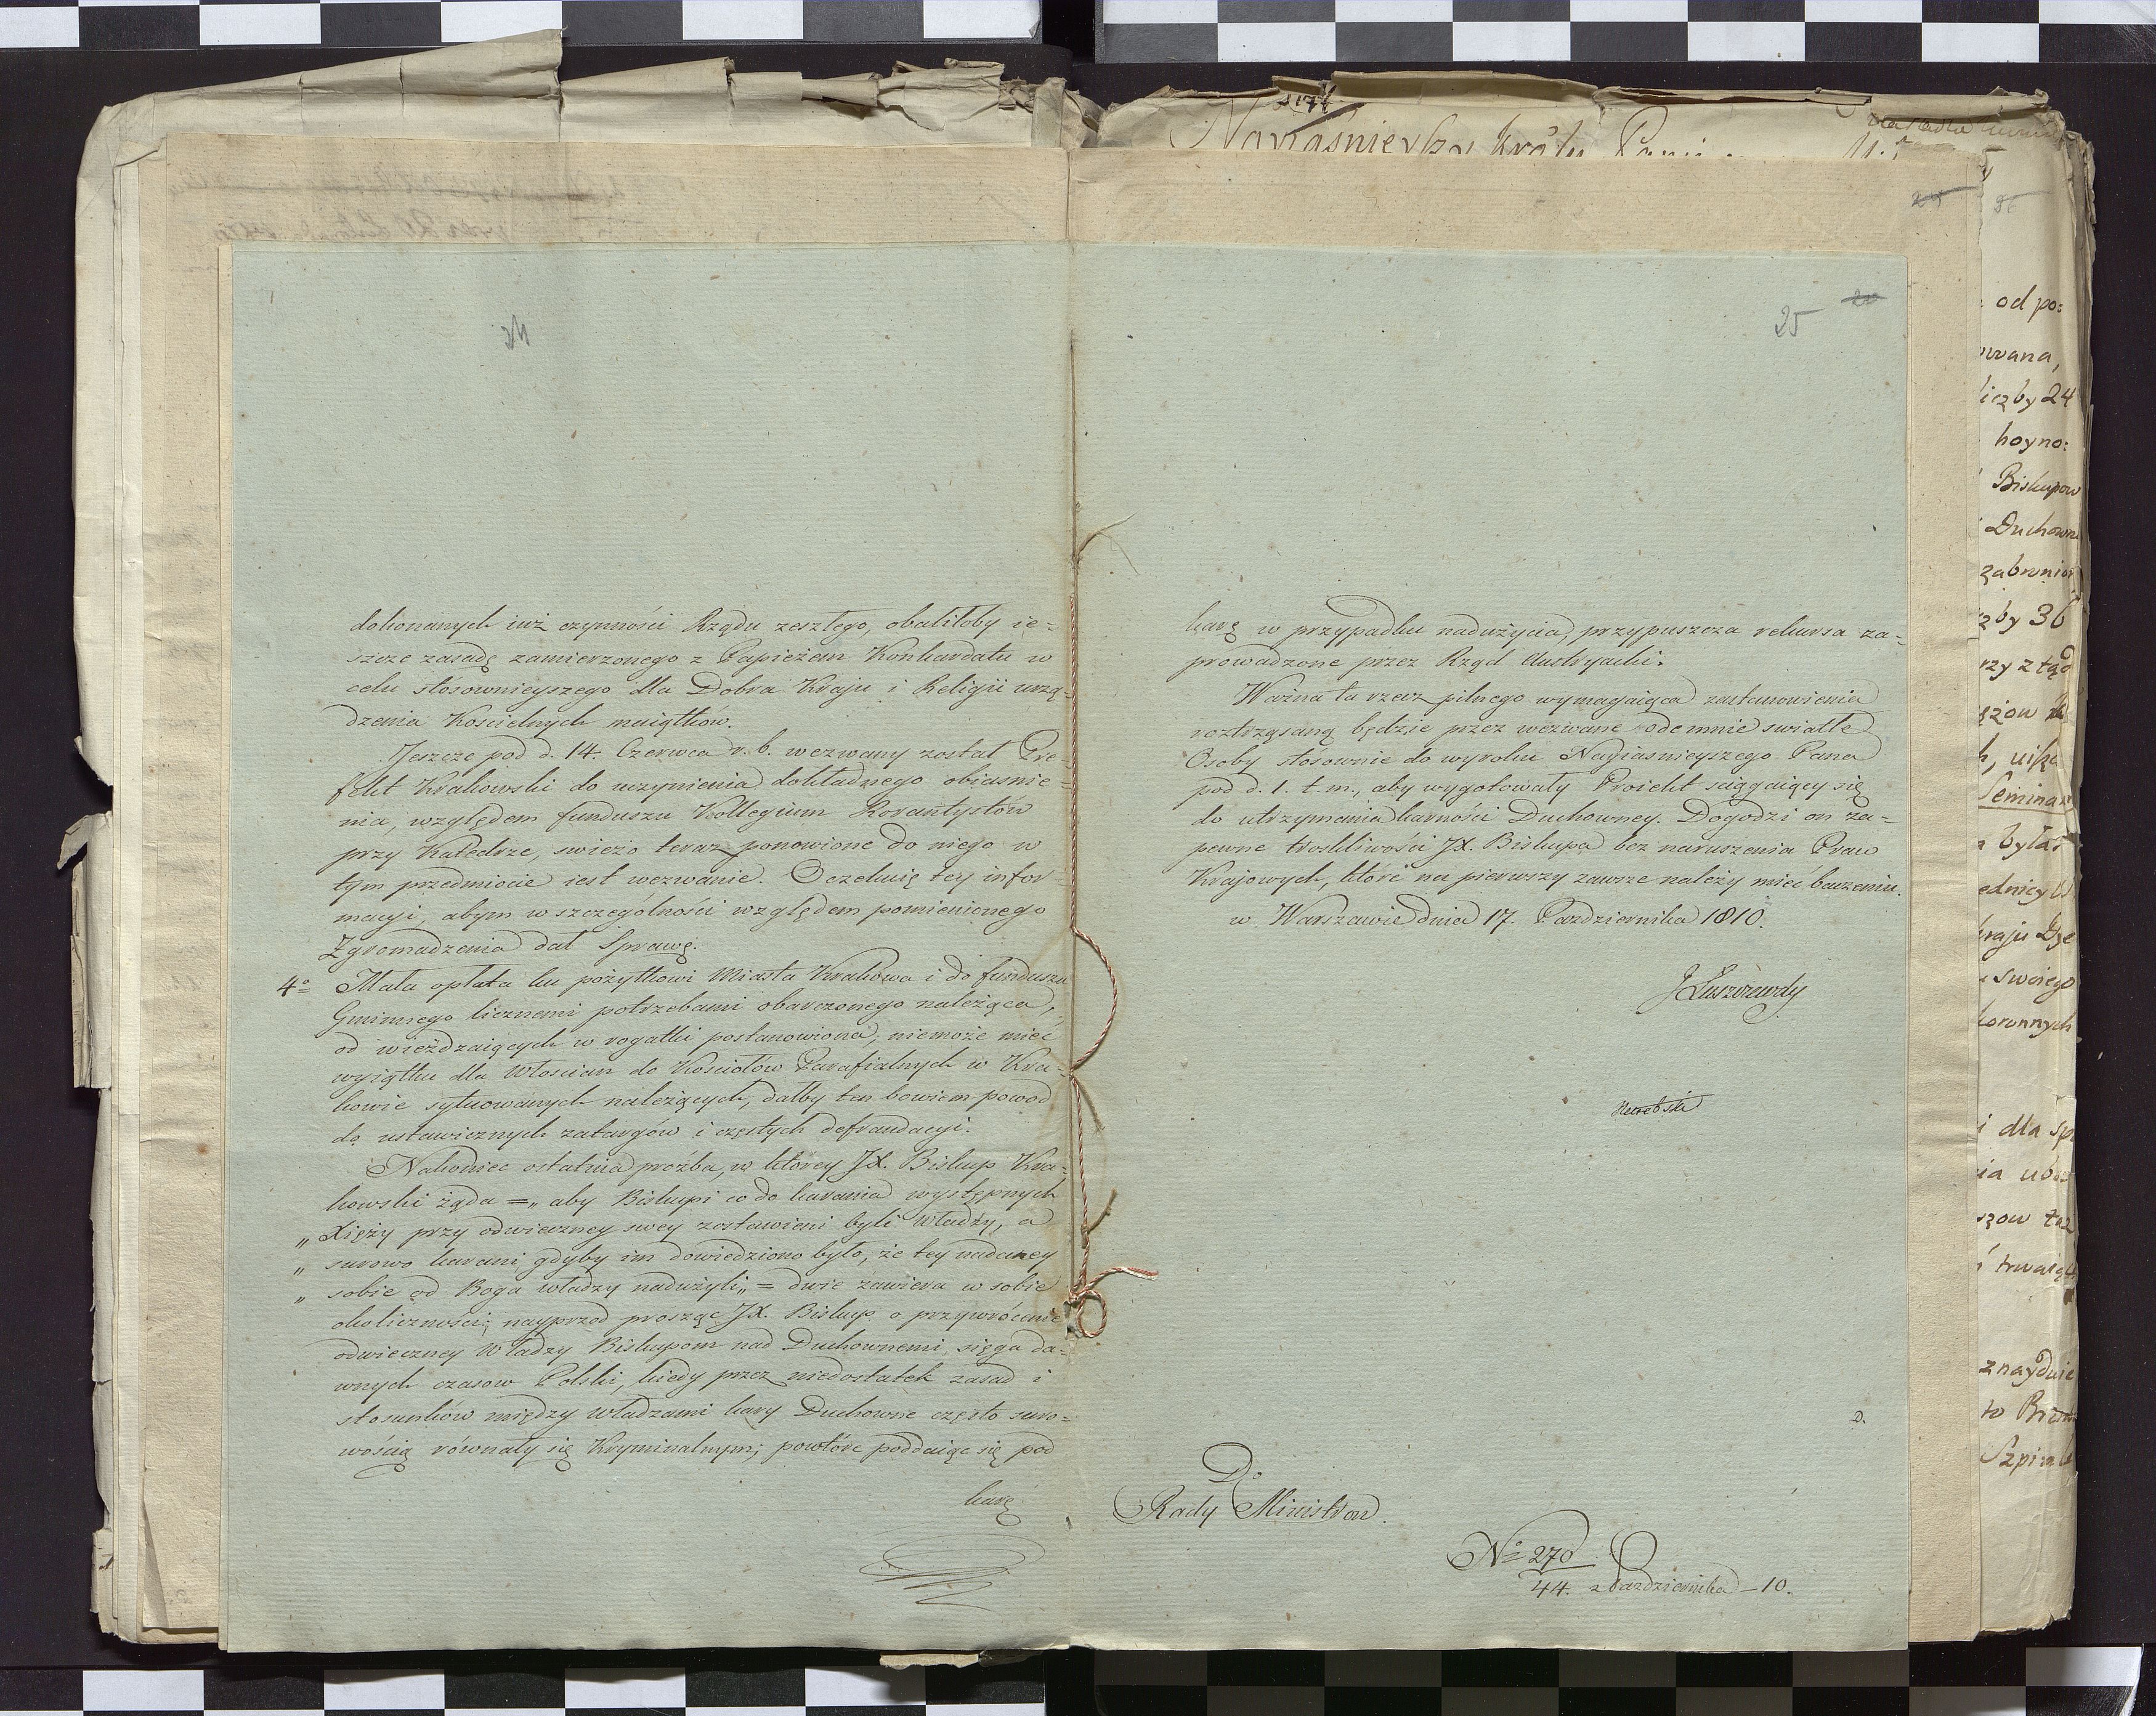 dokonanych iuż czynności Rządu zeszłego, obaliłoby ie=
szcze zasadę zamierzonego z Papieżem Konkordatu w
celu stosownieyszego dla Dobra Kraju i Religii urzą=
dzenia Kościelnych maiątków.
Jeszcze pod d. 14. Czerwca r. b. wezwany został Pre=
fekt Krakowski do uczynienia dokładnego obiaśnie=
nia, względem funduszu Kollegium Rorantystów
przy Katedrze, swieżo teraz ponowione do niego w
tym przedmiocie iest wezwanie. Oczekuię tey infor=
macyi, abym w szczególności względem pomienionego
Zgromadzenia dał Sprawę.
4o Mała opłata ku pożytkowi Miasta Krakowa i do funduszu
Gminnego licznemi potrzebami obarczonego należąca,
od wieżdzaiących w rogatki postanowiona, niemoże mieć
wyiątku dla Włościan do Kościołów Parafialnych w Kra=
kowie sytuowanych należących, dałby ten bowiem powod
do ustawicznych zatargów i częstych defraudacyi.
Nakoniec ostatnia proźba, w ktorey JX. Biskup Kra=
kowski żąda = „ aby Biskupi co do karania występnych
„ Xięży przy odwieczney swey zostawieni byli władzy, a
„ surowo karani, gdyby im dowiedziono było, że tey nadaney
„ sobie od Boga władzy nadużyli „ = dwie zawiera w sobie
okoliczności; nayprzod prosząc JX. Biskup o przywrócenie
odwieczney Władzy Biskupom nad Duchownemi, sięga da=
wnych czasow Polski, kiedy przez niedostatek zasad i
stosunków między władzami kary Duchowne często suro=
wością równały się Kryminalnym; powtóre poddaiąc się pod
karę
25
karę w przypadku nadużycia, przypuszcza rekursa za=
prowadzone przez Rząd Austryacki.
Ważna ta rzecz pilnego wymagaiąca zastanowienia
roztrząsaną będzie przez wezwane odemnie swiatłe
Osoby stosownie do wyroku Nayiasnieyszego Pana
pod d. 1. t. m., aby wygotowały Proiekt sciągaiący się
do utrzymania karności Duchowney. Dogodzi on za=
pewne troskliwości JX. Biskupa bez naruszenia Praw
Krajowych, które na pierwszy zawsze należy mieć baczeniu.
w Warszawie dnia 17. Października 1810.
J Łuszczewski
D.
Do
Rady Ministrow.
No 270
44. z Października – 10.
od po:
wana,
iczby 24
hoyno:
Biskupow
zby 36
Seminar
była:
swoiego
i dla sp
znayduie